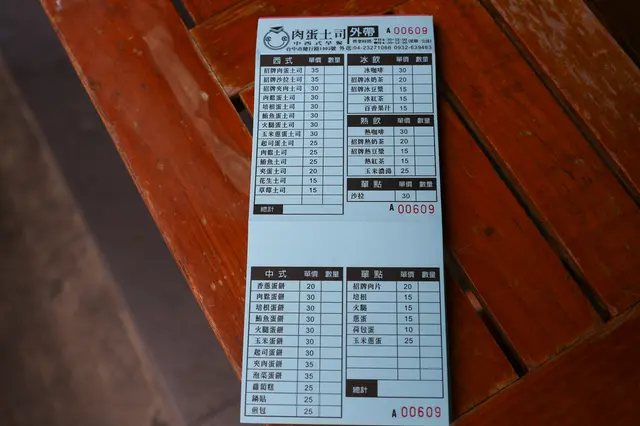 肉蛋土司 外帶 A 00609
中西式早餐
04-23271066 0932-639463
西式 單價 數量
招牌肉蛋土司 35
招牌沙拉土司 35
招牌夾肉土司 30
肉鬆蛋土司 30
培根蛋土司 30
鮪魚蛋土司 30
火腿蛋土司 30
玉米蔥蛋土司 30
起司蛋土司 25
肉鬆土司 25
鮪魚土司 25
夾蛋土司 20
花生土司 15
草莓土司 15
總計
冰飲 單價 數量
冰咖啡 30
招牌冰奶茶 20
招牌冰豆漿 15
冰紅茶 15
百香果汁 15
熱飲 單價 數量
熱咖啡 30
招牌熱奶茶 20
招牌熱豆漿 15
熱紅茶 15
玉米濃湯 25
單點 單價 數量
沙拉 30
A 00609
中式 單價 數量
香蔥蛋餅 20
肉鬆蛋餅 30
培根蛋餅 30
鮪魚蛋餅 30
火腿蛋餅 30
玉米蛋餅 30
起司蛋餅 30
夾肉蛋餅 35
泡菜蛋餅 35
蘿蔔糕 25
鍋貼 25
煎包 25
單點 單價 數量
招牌肉片 20
培根 15
火腿 15
蔥蛋 15
荷包蛋 10
玉米蔥蛋 25
總計
A 00609